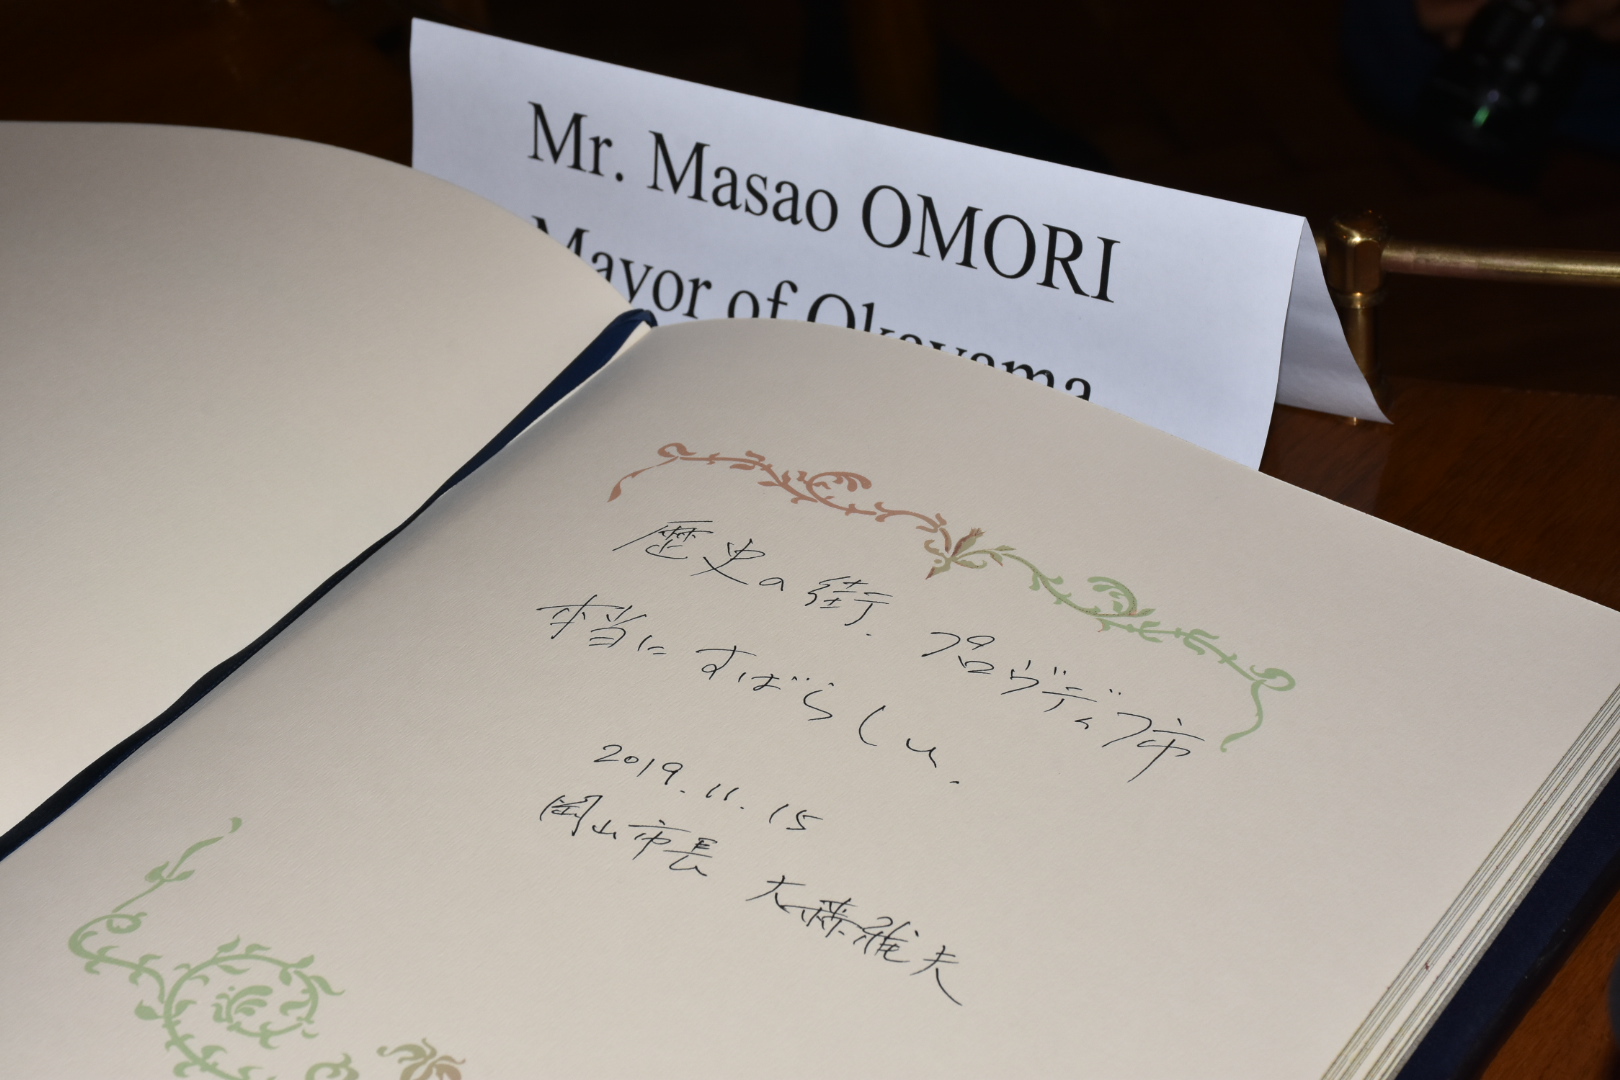 Mr. Masao OMORI
Mayor of Okayama
歴史の街、プロヴディフ市
本当にすばらしい。
2019.11.15
岡山市長 大森雅夫